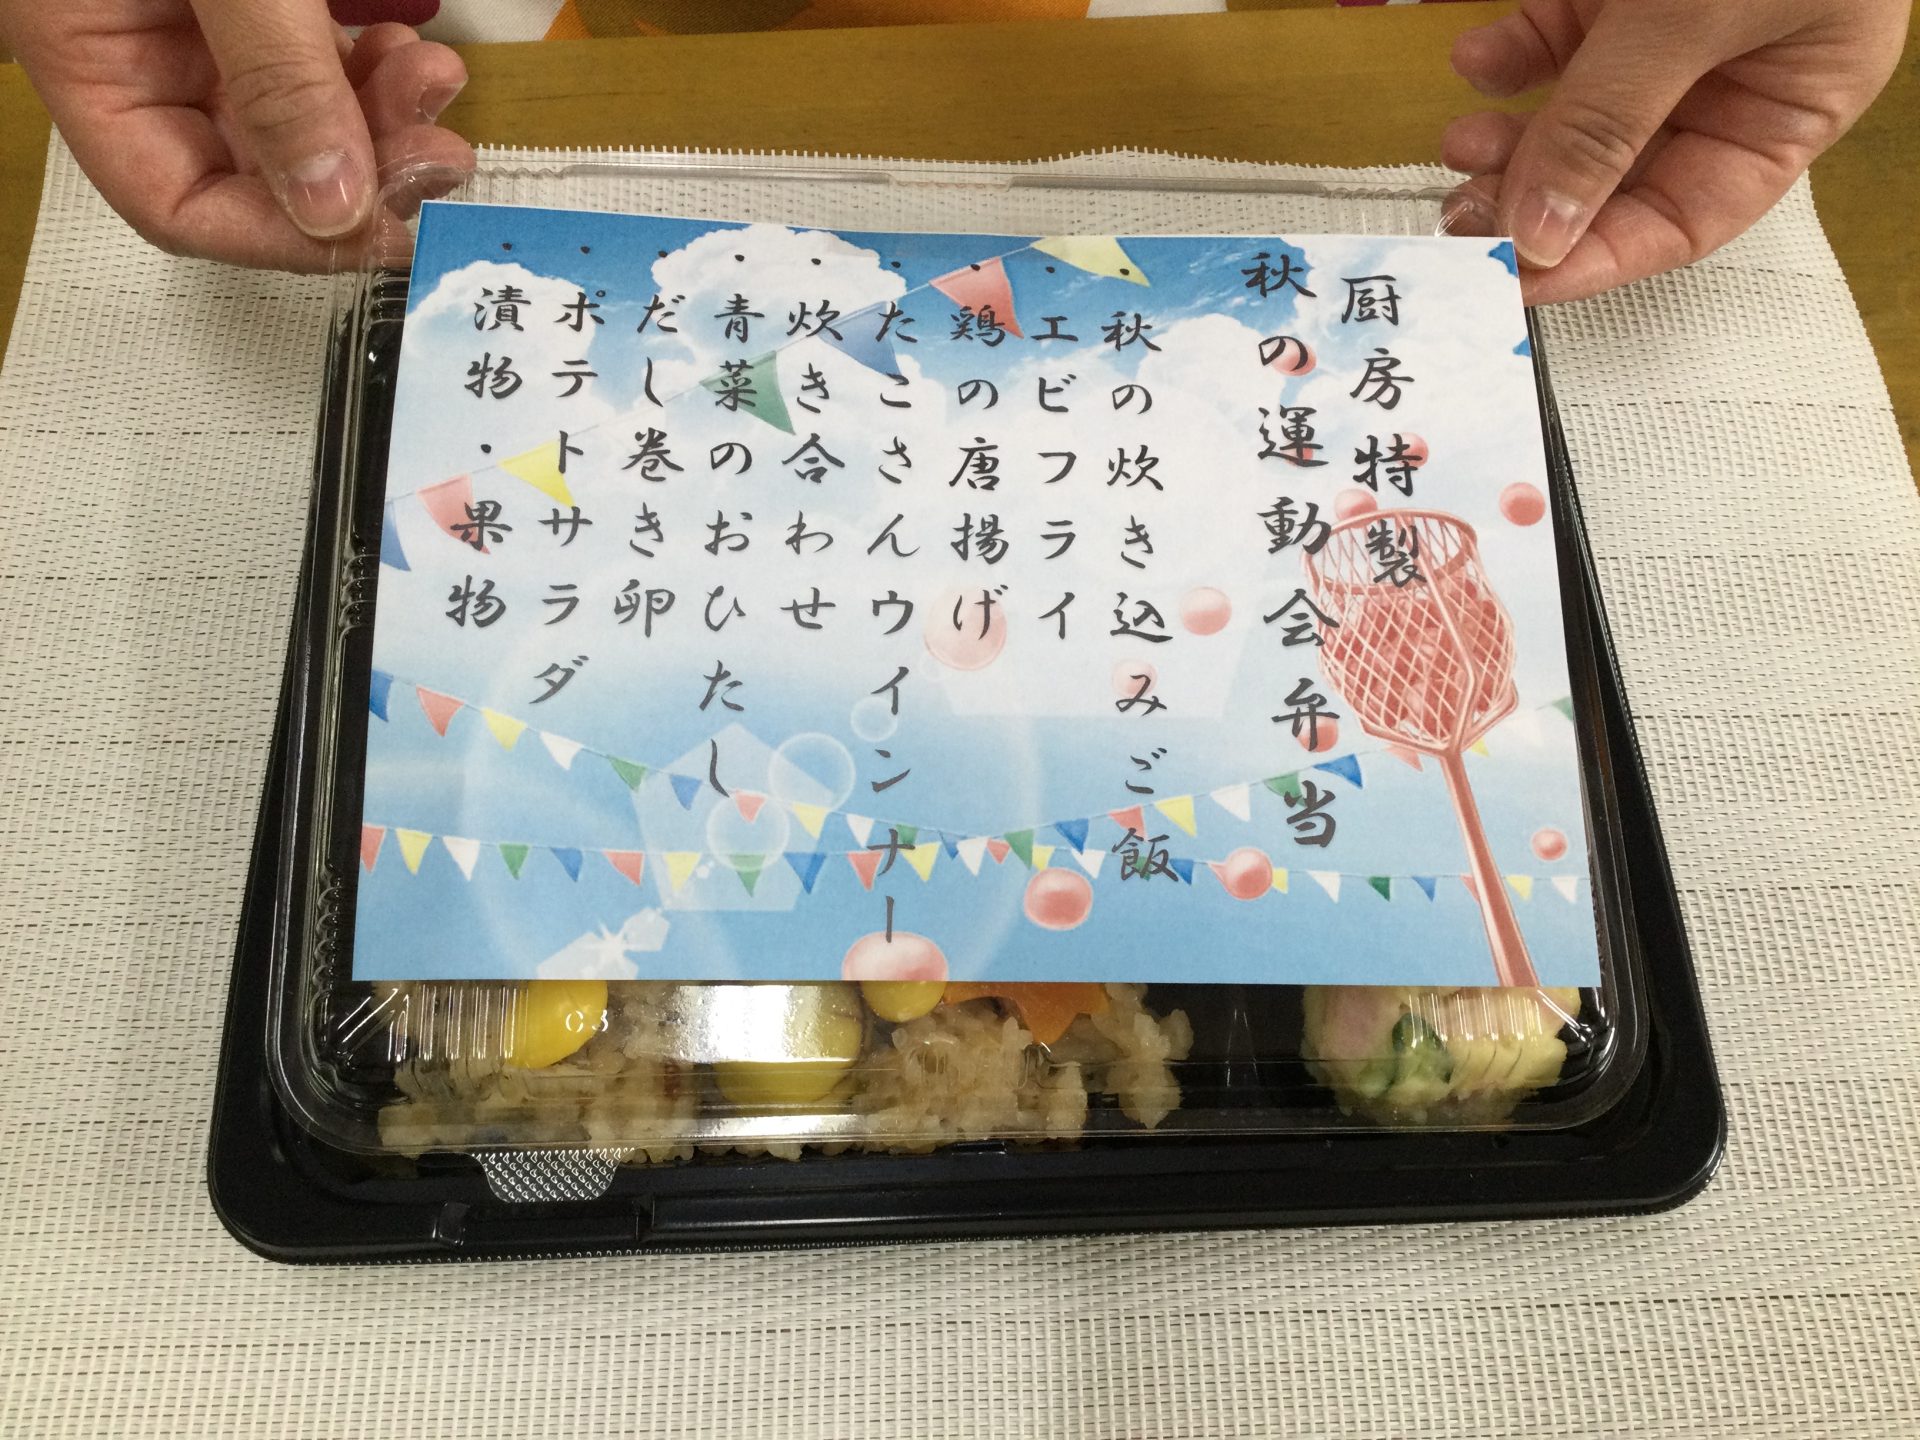 厨房特製
秋の運動会弁当
・秋の炊き込みご飯
・エビフライ
・鶏の唐揚げ
・たこさんウインナー
・炊き合わせ
・青菜のおひたし
・だし巻き卵
・ポテトサラダ
・漬物・果物